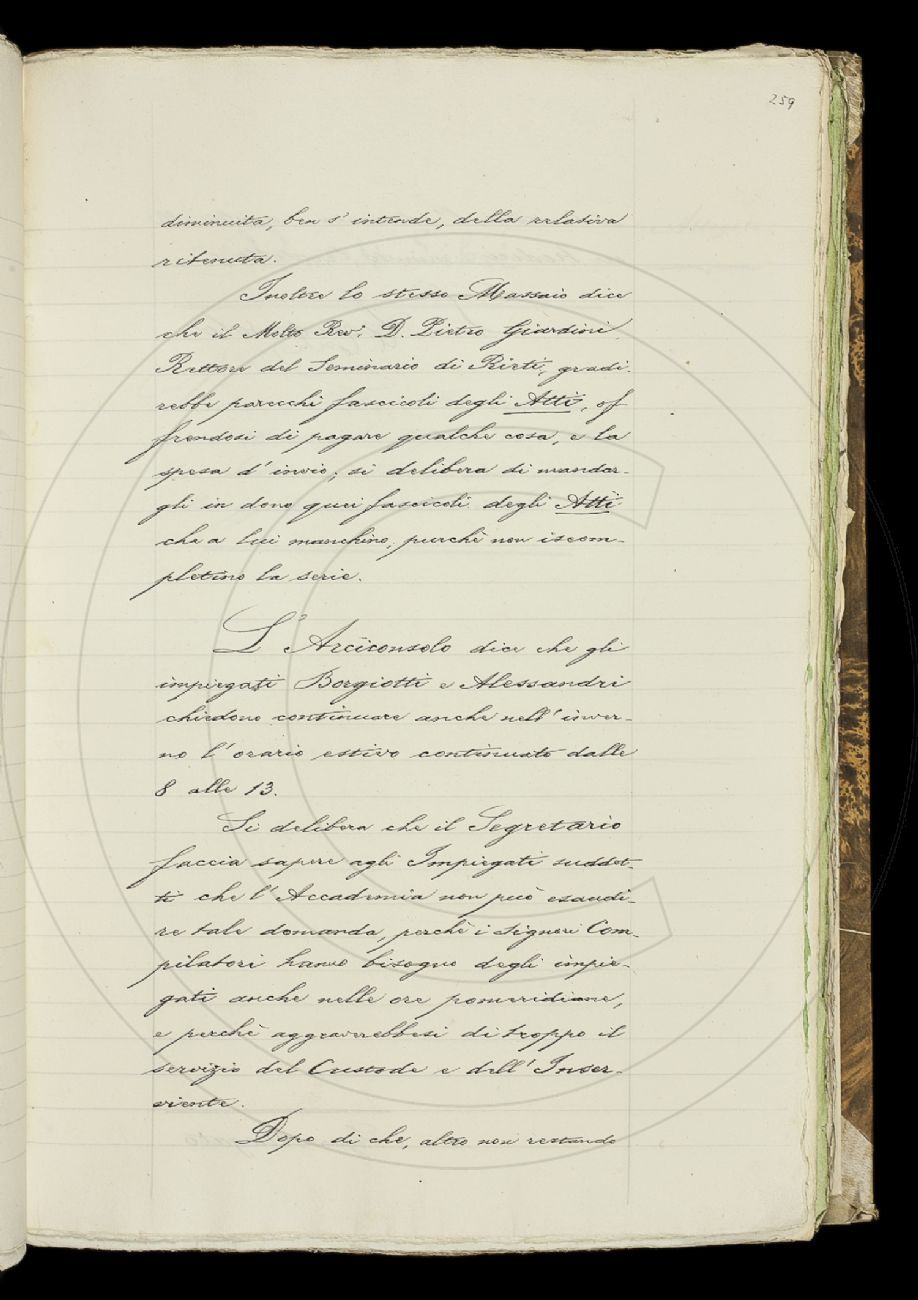 259
diminuita, ben s'intende, della relativa
ritenuta.
Inoltre lo stesso Massaio dice
che il Molto Rev: D. Pietro Giardini,
Rettore del Seminario di Rieti, gradi-
rebbe parecchi fascicoli degli Atti, of
frendosi di pagare qualche cosa, e la
spesa d'invio; si delibera di mandar-
gli in dono quei fascicoli degli Atti
che a lui manchino, purchè non iscom-
pletino la serie.
L'Arciconsolo dice che gli
impiegati Borgiotti e Alessandri
chiedono continuare anche nell'inver-
no l'orario estivo continuato dalle
8 alle 13.
Si delibera che il Segretario
faccia sapere agli Impiegati suddet-
ti che l'Accademia non può esaudi-
re tale domanda, perchè i Signori Com-
pilatori hanno bisogno degli impie-
gati anche nelle ore pomeridiane,
e perchè aggraverebbesi di troppo il
servizio del Custode e dell'Inser-
viente.
Dopo di che, altro non restando